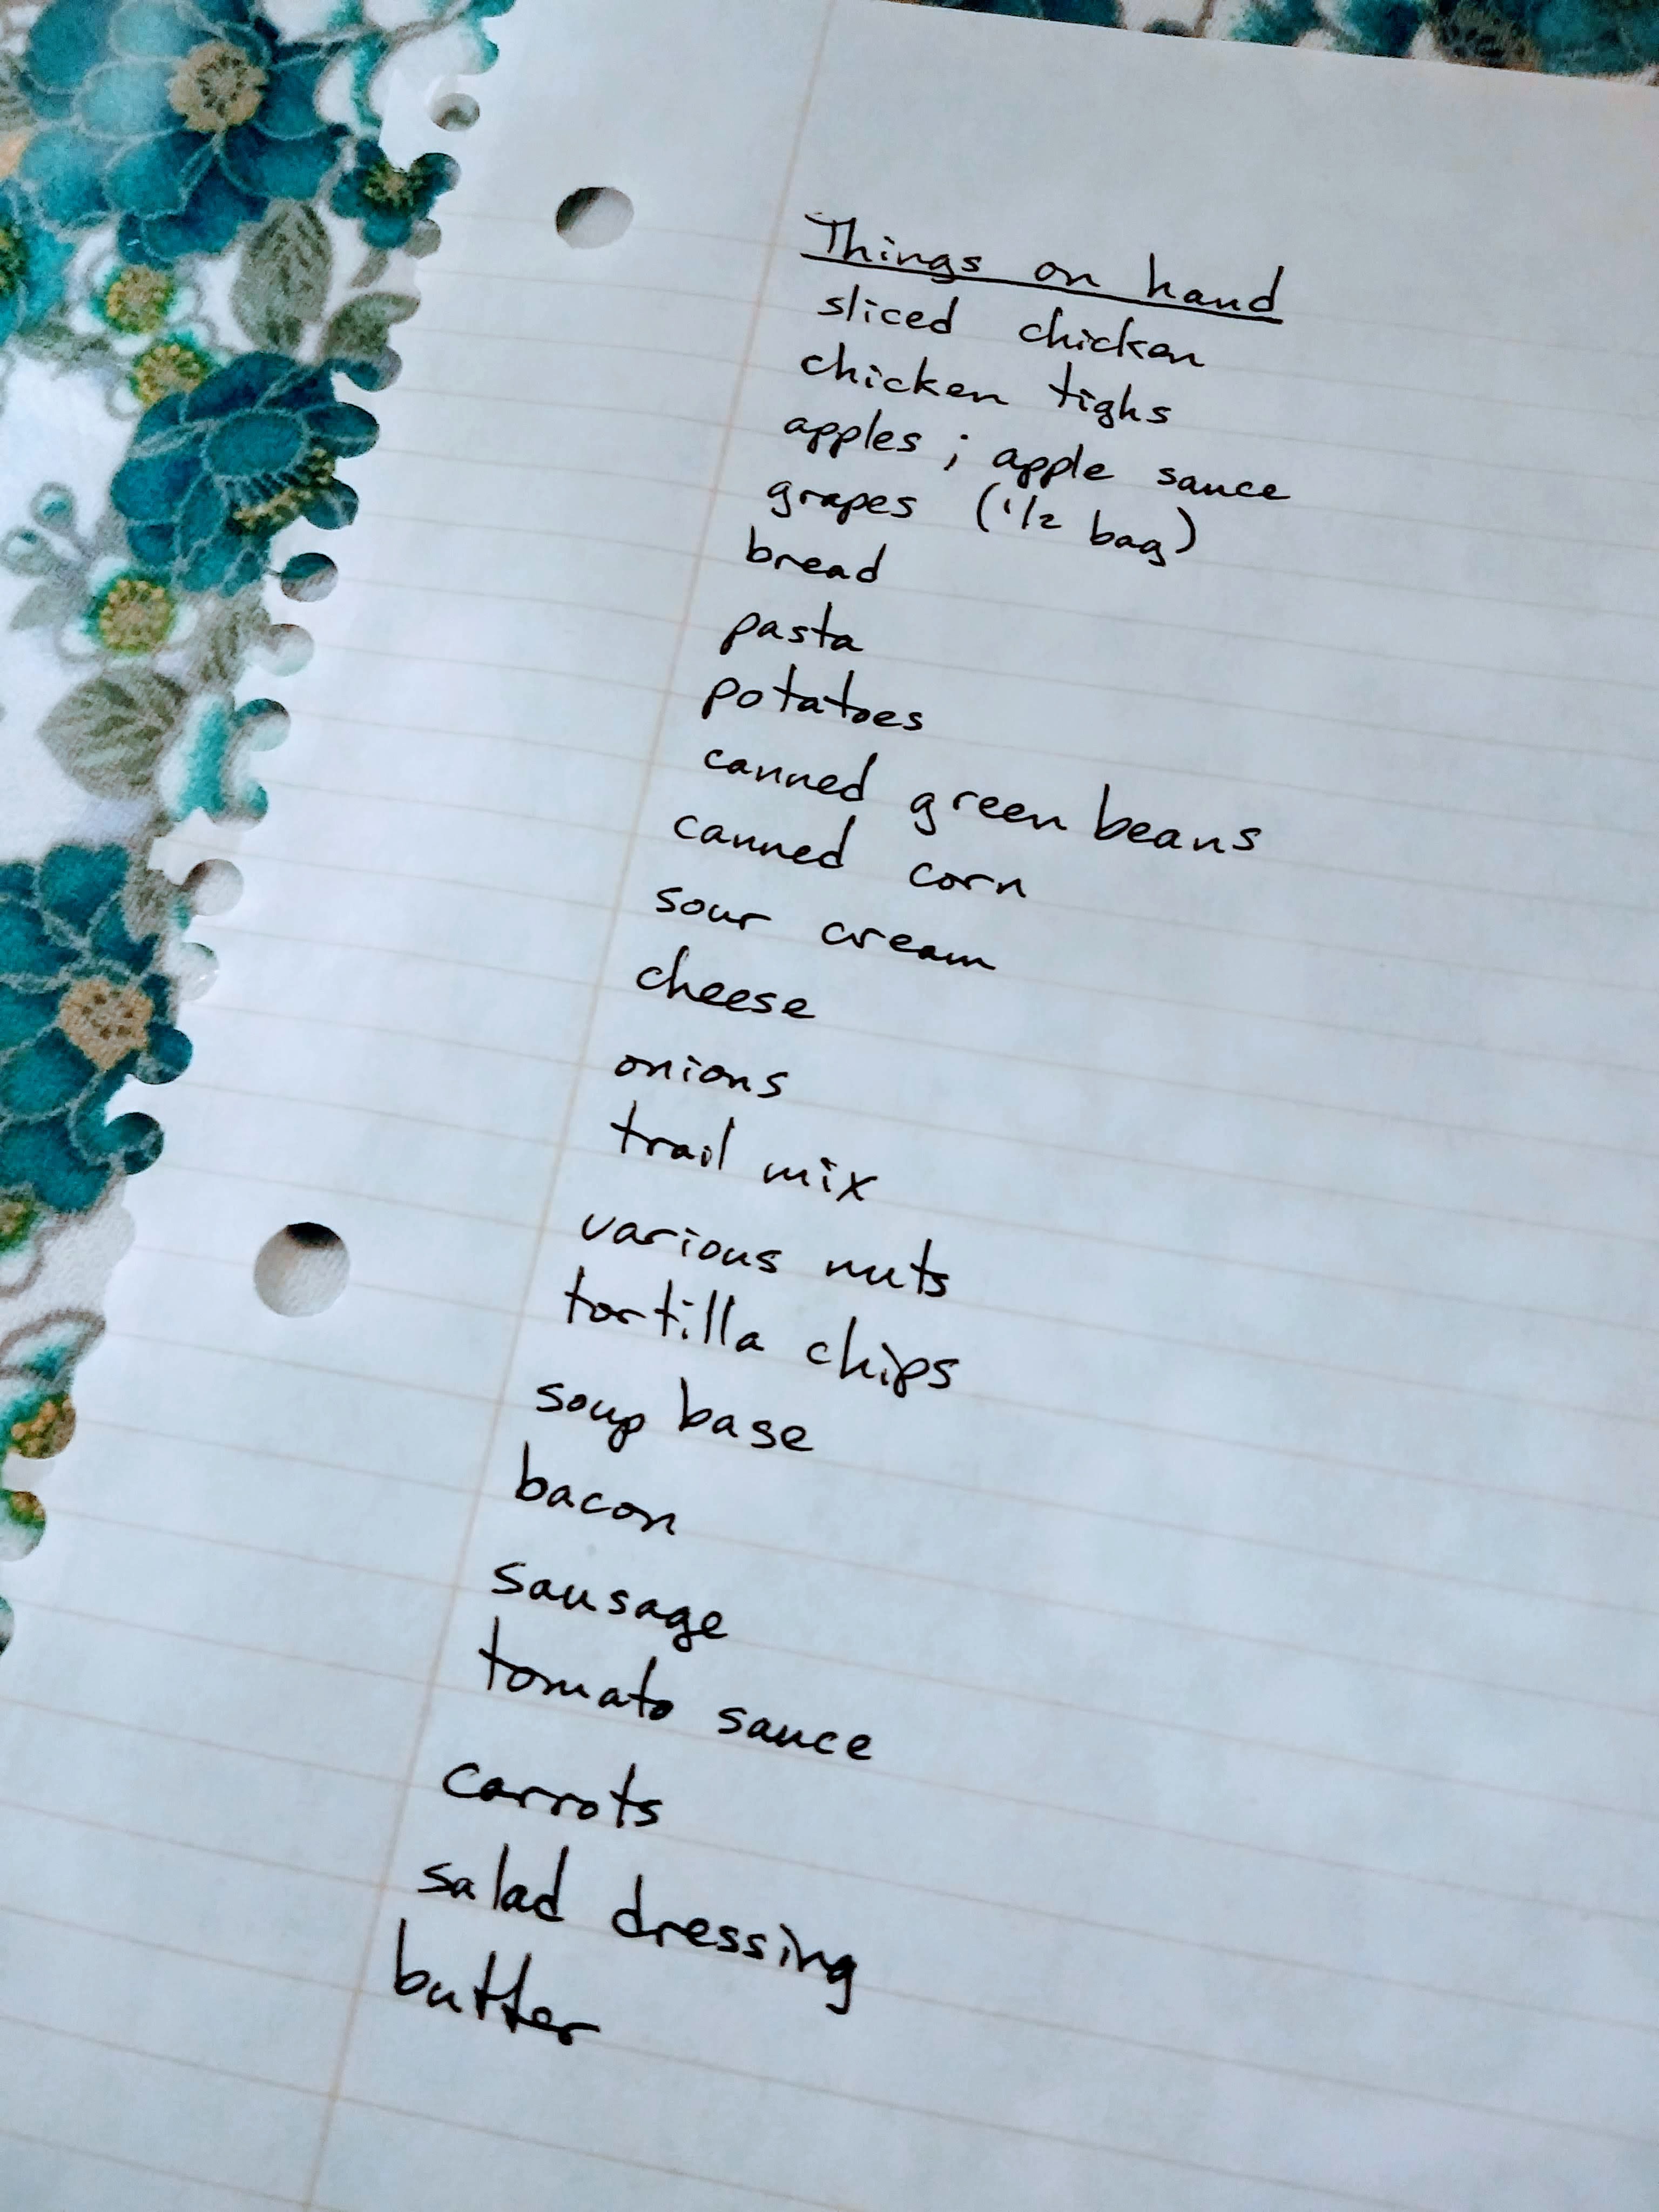 Things on hand
sliced chicken
chicken tighs
apples ; apple sauce
grapes (1/2 bag)
bread
pasta
potatoes
canned green beans
canned corn
sour cream
cheese
onions
trail mix
various nuts
tortilla chips
soup base
bacon
sausage
tomato sauce
carrots
salad dressing
butter